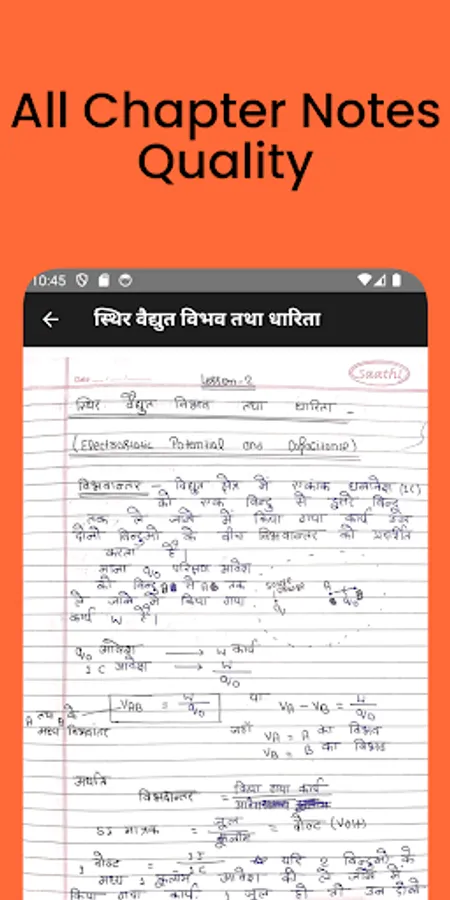 All Chapter Notes
Quality
10:45
स्थिर वैद्युत विभव तथा धारिता
Date
Saathi
Lesson-2
स्थिर वैद्युत विभव तथा धारिता -
(Electrostatic Potential and
विभवान्तर - विद्युत क्षेत्र में एकांक धनावेश (1C)
को एक बिन्दु से दूसरे बिन्दु
तक ले जाने में किया गया कार्य उन
दोनो बिन्दुओ के बीच विभवान्तर को प्रदर्शित
करता है।
माना q₀ परिक्षण आवेश
को बिन्दु से तक
ले जाने में किया गया
कार्य W है।
q₀ आवेश → W कार्य
1 C आवेश → W/q₀
V_AB = W/q₀ या V_A - V_B = W/q₀
A तथा B के
मध्य विभवांतर
जहाँ V_A = A का विभव
V_B = B का विभव
अर्थात
विभवान्तर = किया गया कार्य
SI मात्रक = जूल/कुलॉम = वोल्ट (Volt)
1 वोल्ट = यदि 2 बिन्दुओ के
मध्य 1 कुलॉम आवेश को ले जाने में
किया गया कार्य 1 जूल हो तो उन दोनो